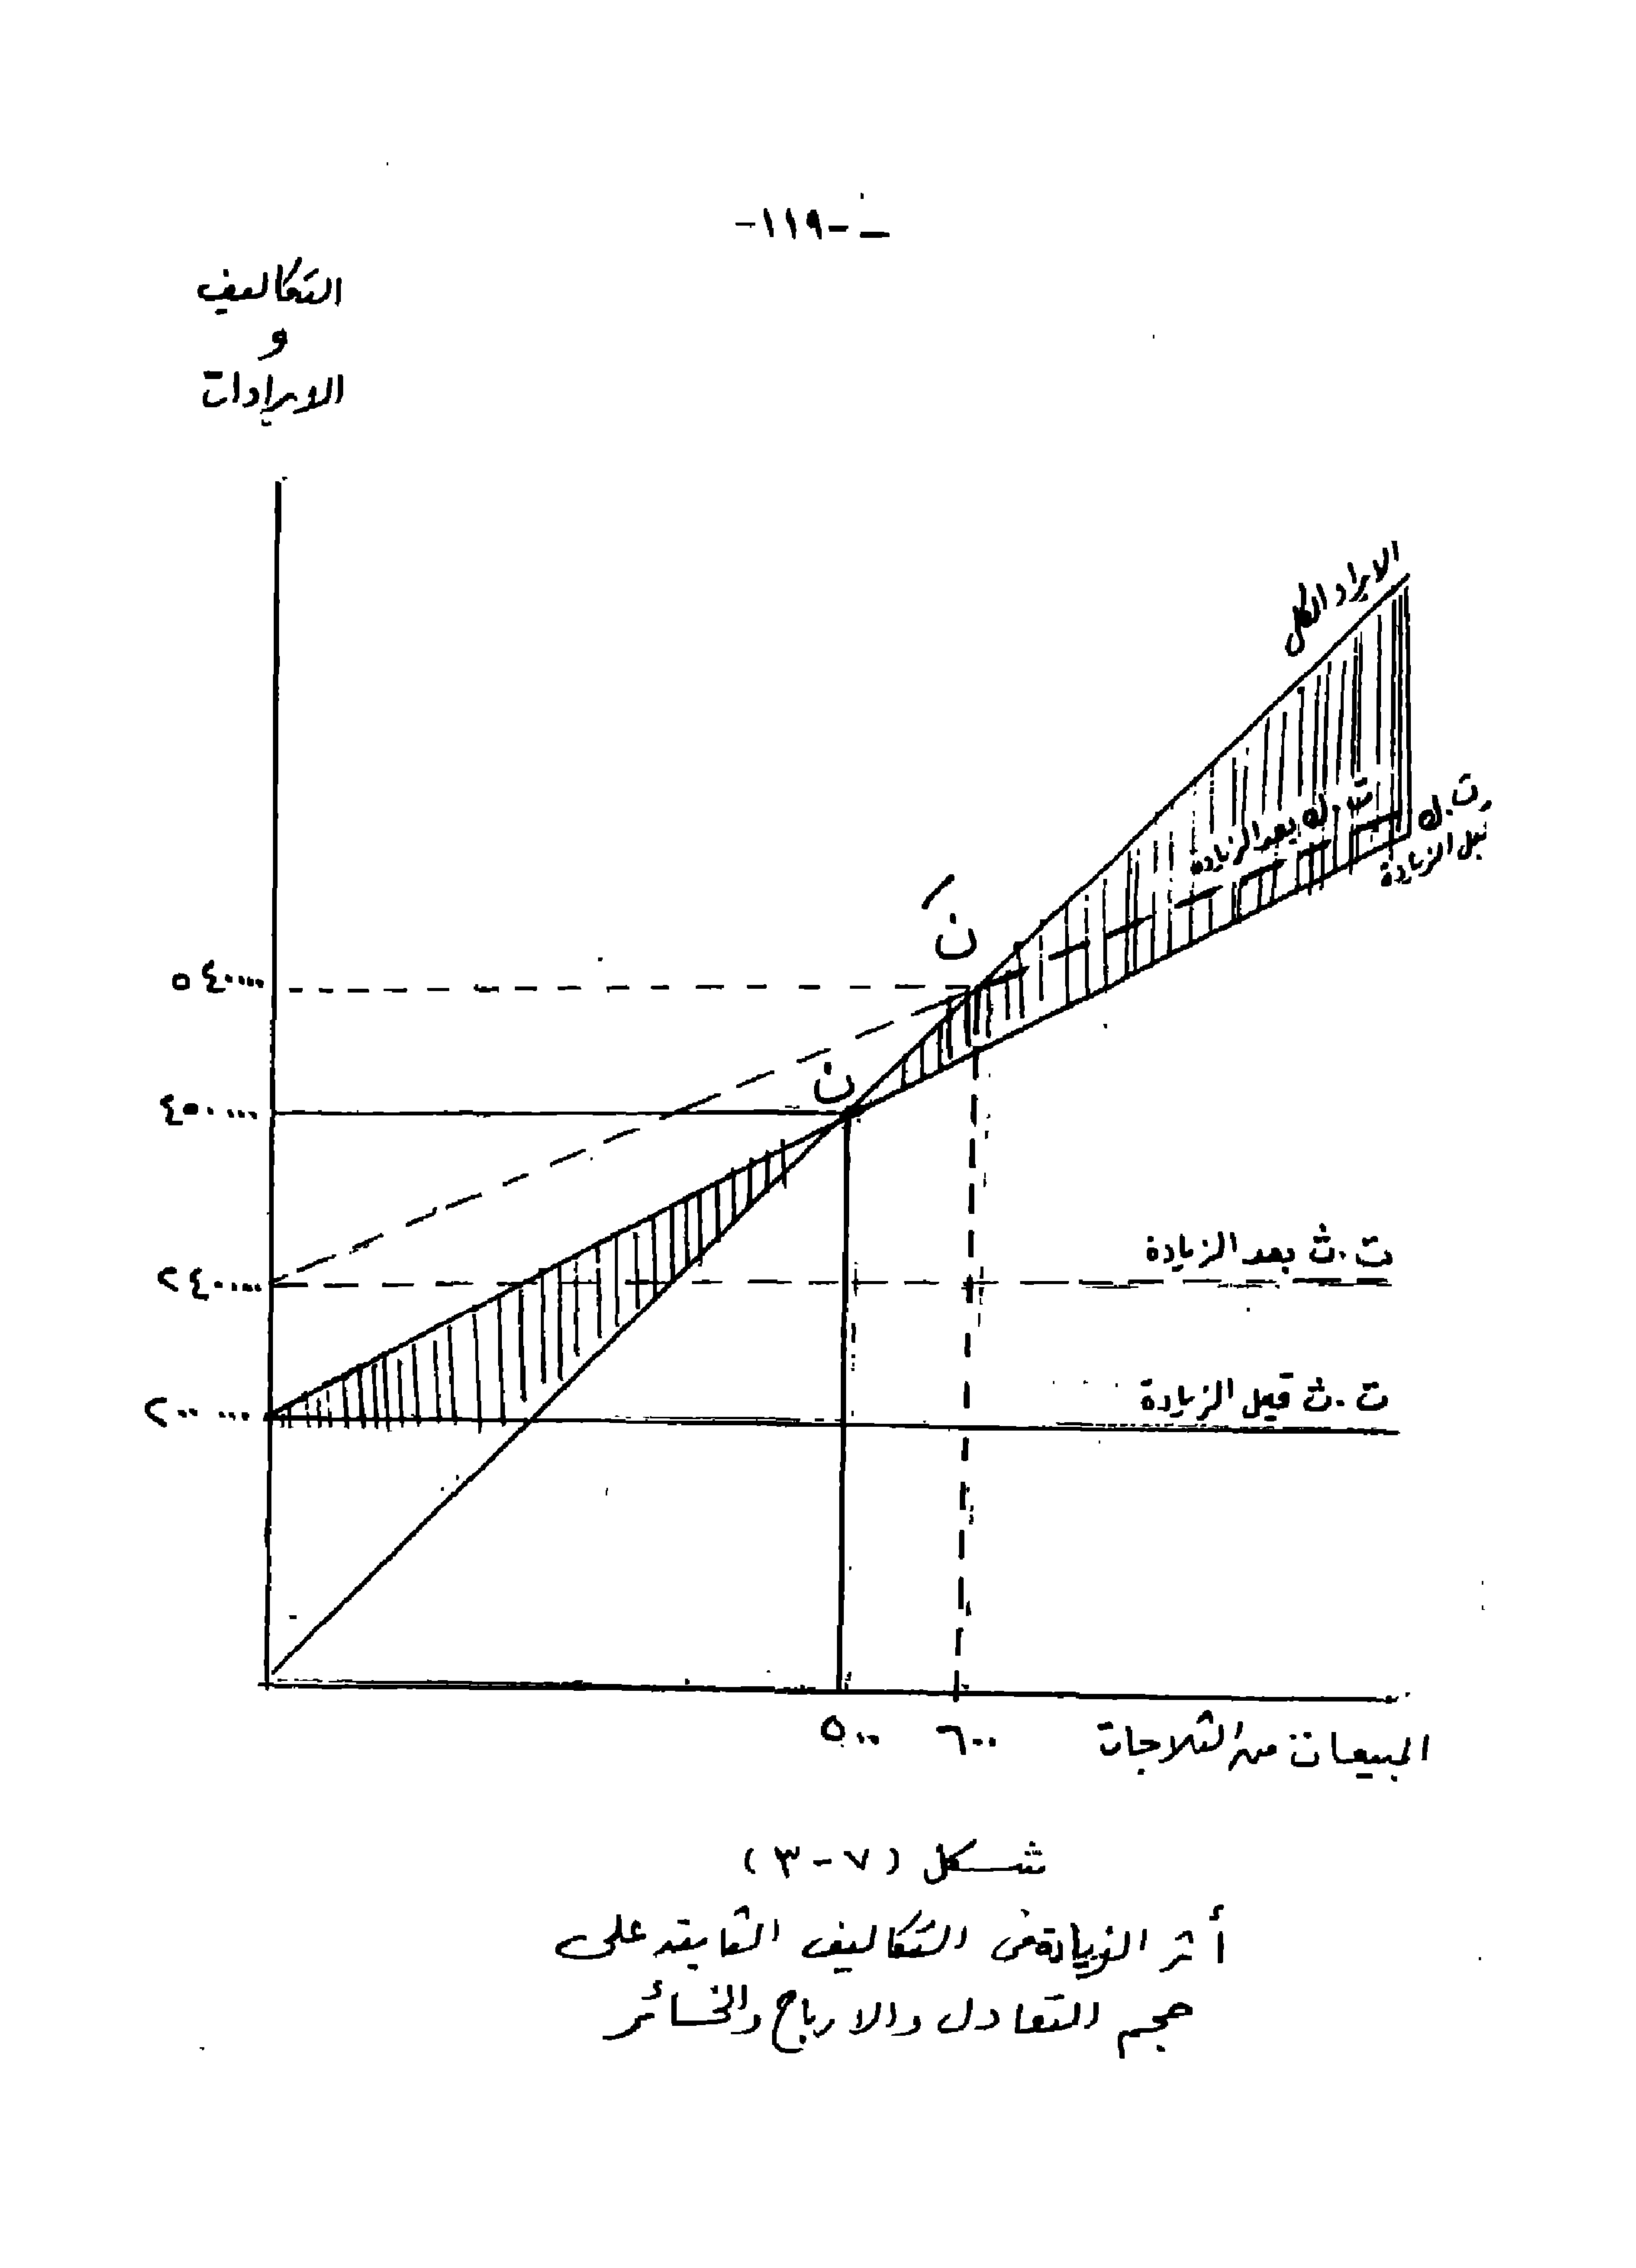 -١١٩- -
التكاليف
و
الايرادات
الايراد الكلى
ت.ك بعد الزيادة
ت.ك
قبل الزيادة
نَ
٥٤٠٠٠٠
ن
٤٥٠٠٠٠
ت.ث بعد الزيادة
٢٤٠٠٠٠
ت.ث قبل الزيادة
٢٠٠٠٠٠
٥٠٠ ٦٠٠ المبيعات من الثلاجات
شكل (٧-٣)
أثر الزيادة فى التكاليف الثابته على
حجم التعادل والارباح والخسائر